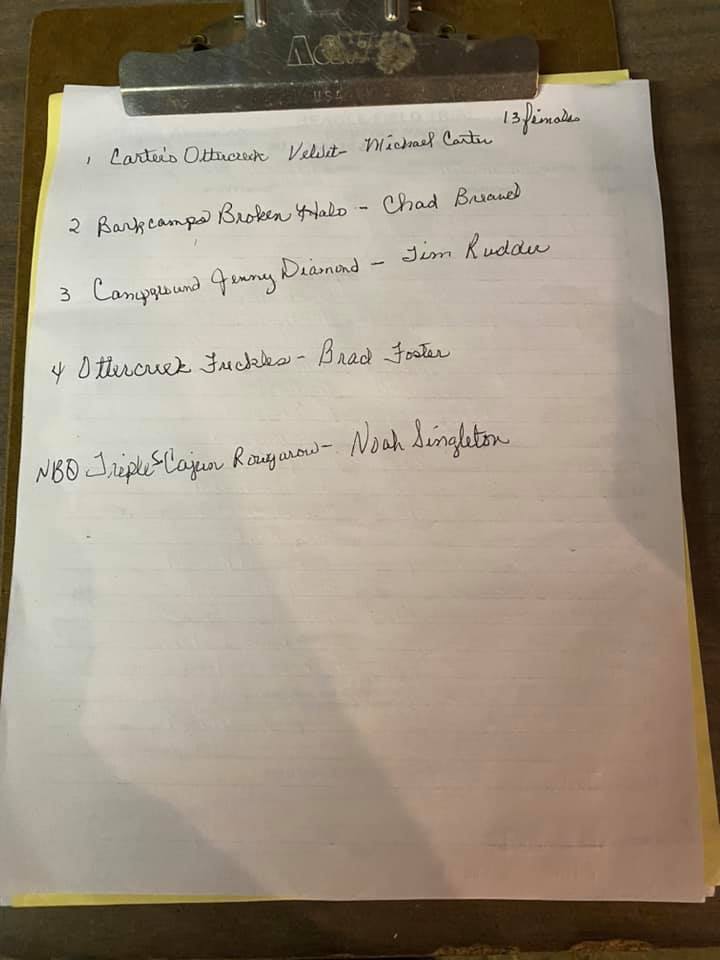 ACME
USA
13 females
1 Carter's Ottercreek Velvet - Michael Carter
2 Barkcamps Broken Halo - Chad
3 Campground Jenny Diamond - Jim Rudder
4 Ottercreek Freckles - Brad Foster
NBO Triple S Cajun Rougarow - Noah Singleton